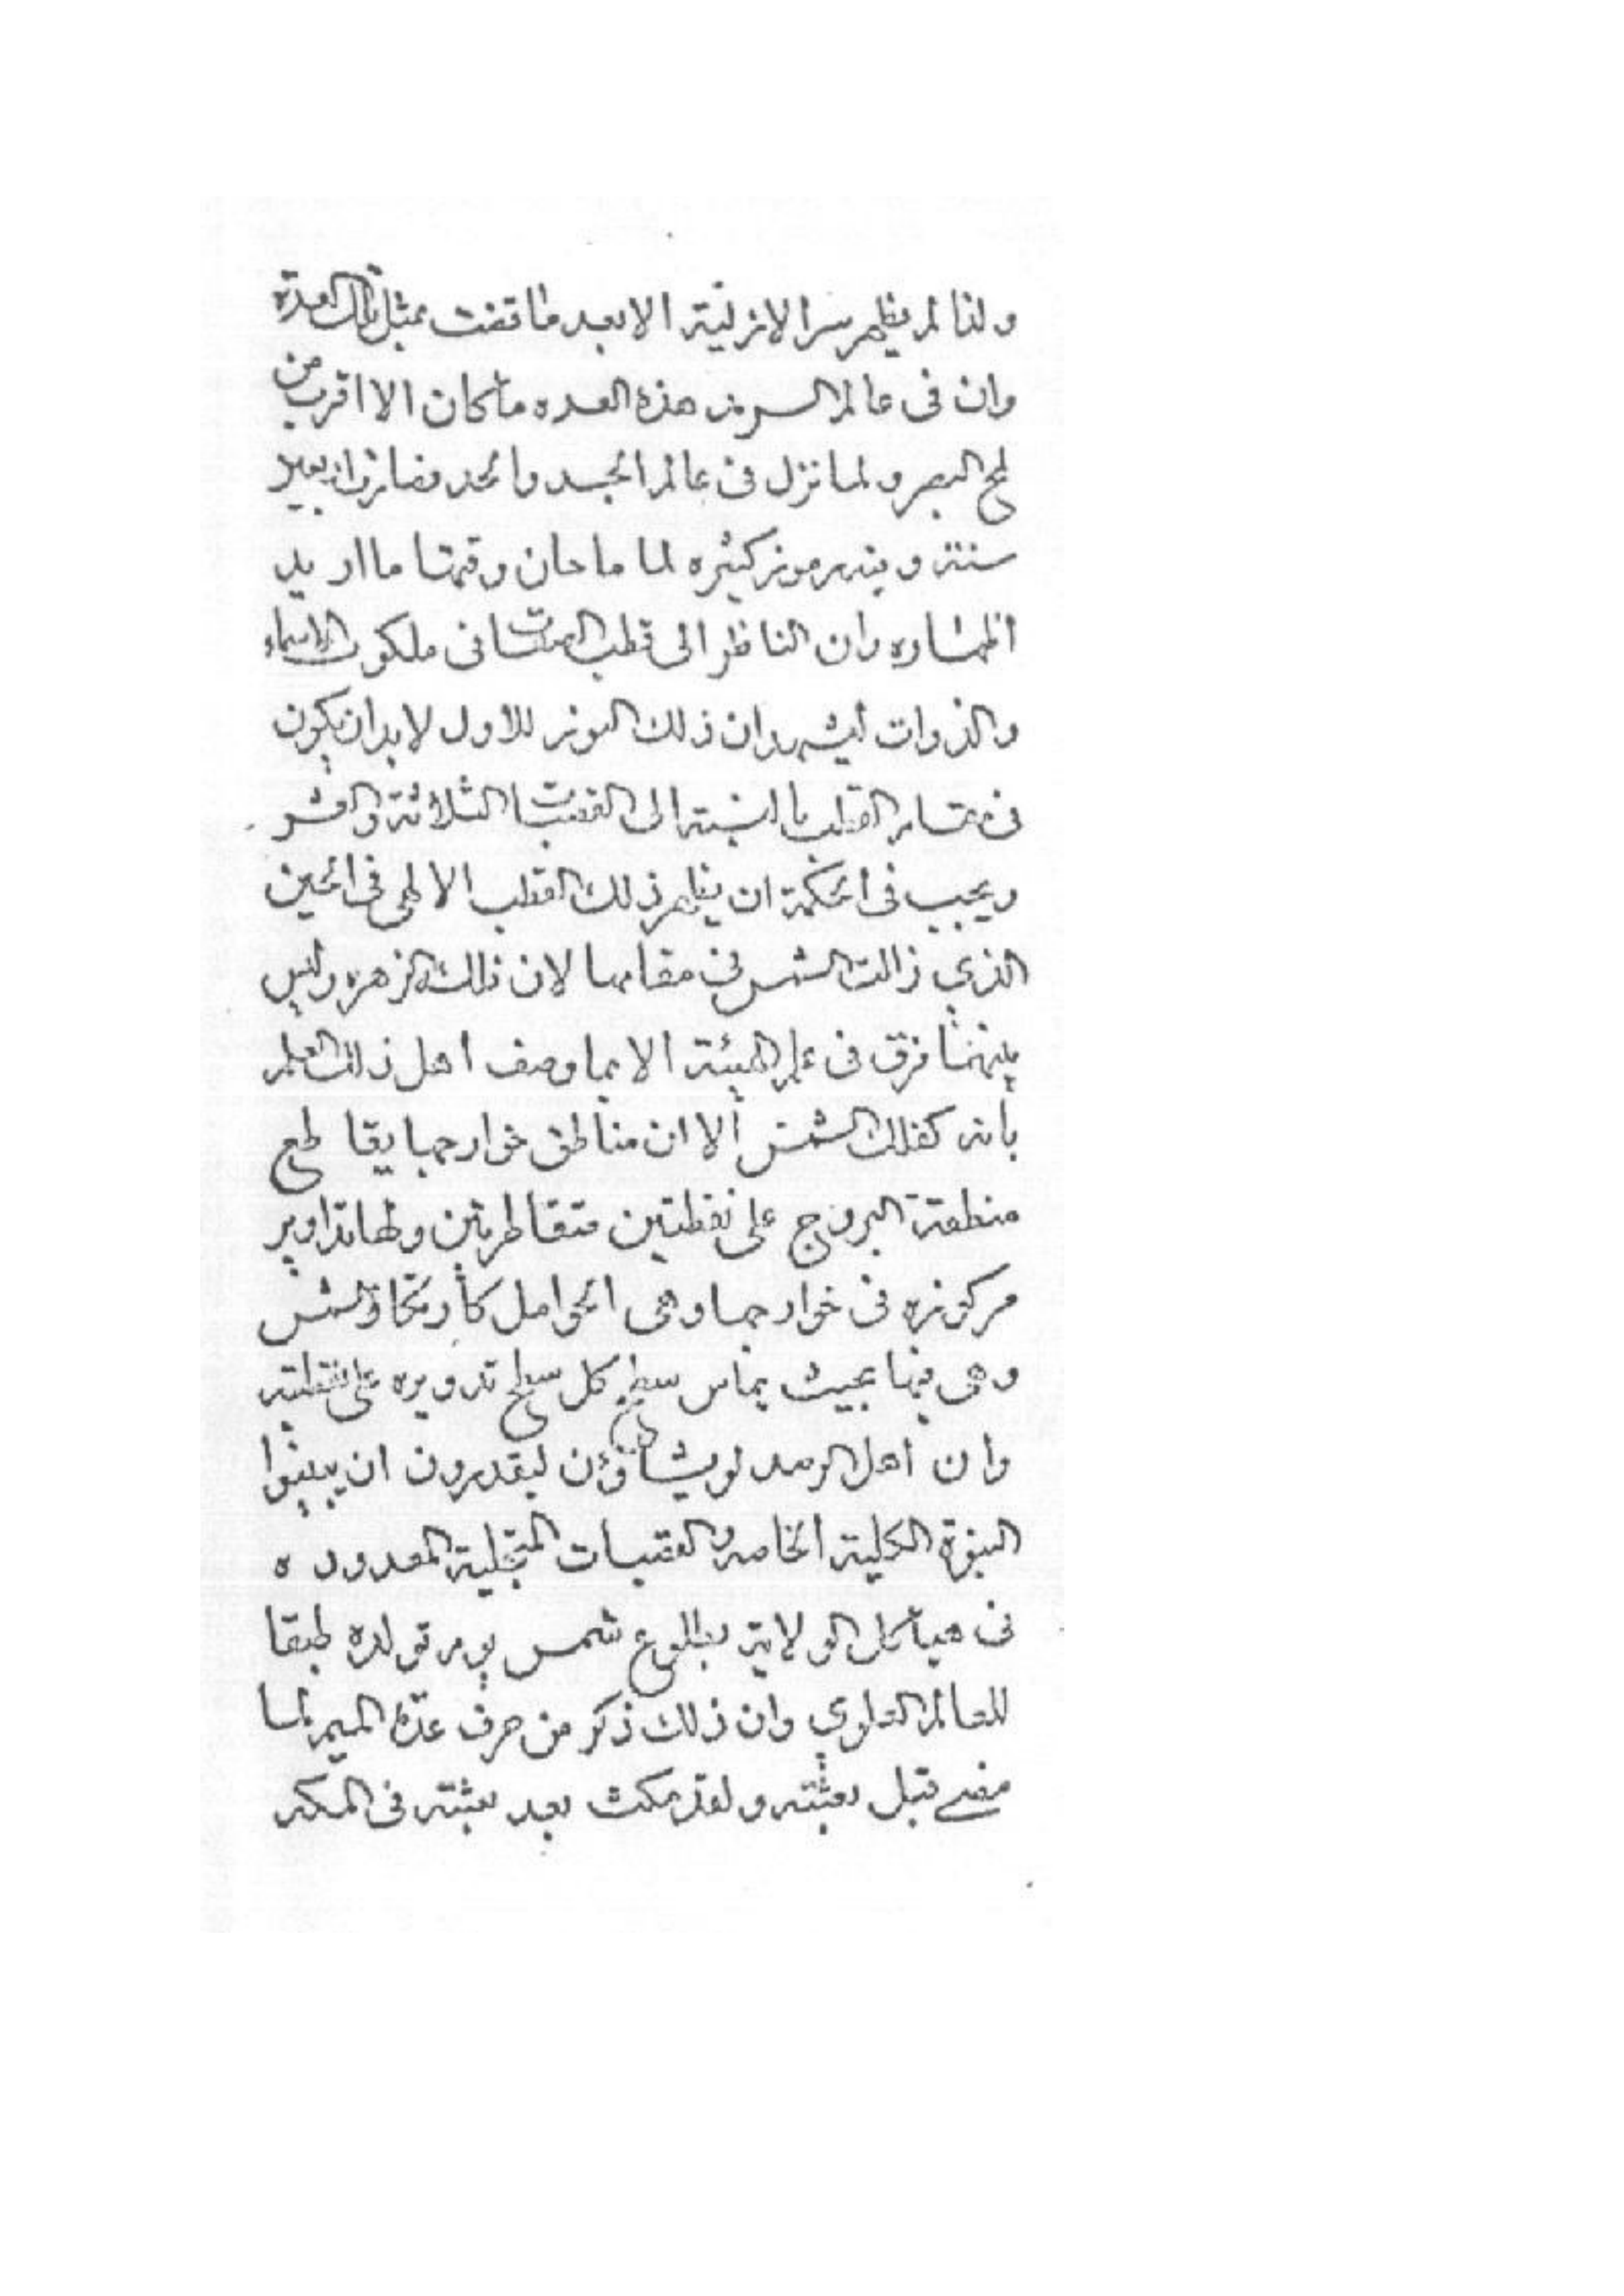 ولذا لم يظهر سر الازلية الا بعد ما قضت بمثل تلك العدة
وان فى عالم السرمد هذه العده ما كان الا اقرب من
لمح البصر ولما نزل فى عالم الجسد والحد
سنته و رموز كثيره لما ما حان وقتها ما اريد
اظهاره وان الناظر الى قطب فى ملكوت الاسماء
والذوات ليشهد ان ذلك النور للاول لابد ان يكون
فى مقام القطب بالنسبته الى القعبات الثلاثة والعشر
ويجب فى الحكمة ان يظهر ذلك القطب الالهى فى الحين
الذي زالت الشمس فى مقامها لان ذلك الزهره وليس
بينهما فرق فى علم الهيئة الا بما وصف اهل ذلك العلم
بأنه كفلك الشمس ألا ان مناطق خوارجها يقاطع
منطقة البروج على نقطتين متقاطرتين ولها تداوير
مركوزه فى خوارجها وهى الحوامل كأرتكاز الشمس
وهى فيها بحيث يماس سطح كل سطح تدويره على نقطته
وان اهل الرصد لو يشاؤن ليقدرون ان يبينوا
النبوة الكلية الخاصه والعقبات المتجلية المعدوده
فى هياكل الولاية بطلوع شمس يوم تولده طبقا
للعالم العلوي وان ذلك ذكر من حرف عدة الميم لما
مضى قبل بعثته ولقد مكث بعد بعثته فى المكه